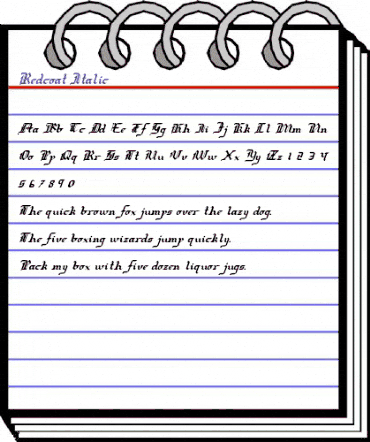 Redcoat Italic
Aa Bb Cc Dd Ee Ff Gg Hh Ii Jj Kk Ll Mm Nn
Oo Pp Qq Rr Ss Tt Uu Vv Ww Xx Yy Zz 1 2 3 4
5 6 7 8 9 0
The quick brown fox jumps over the lazy dog.
The five boxing wizards jump quickly.
Pack my box with five dozen liquor jugs.